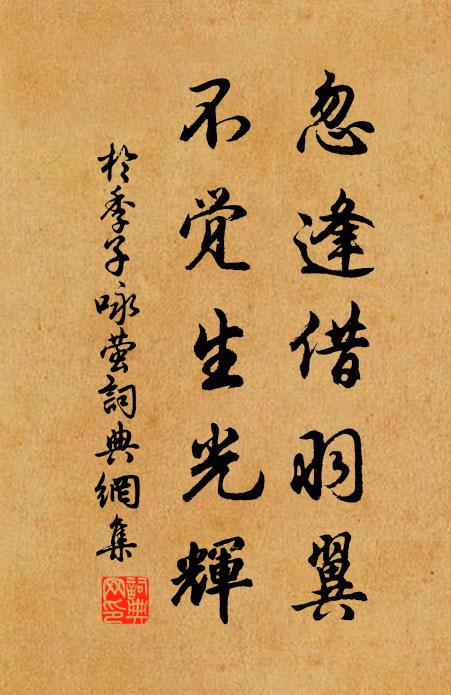 忽逢借羽翼
不觉生光輝
於季子咏萤詞典網集
詞典网印